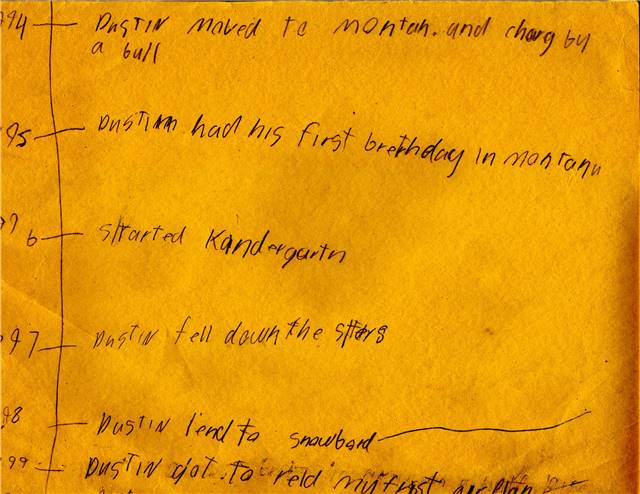 94 DUSTIN moved to montan. and charg by
a bull
95 DUSTIN had his first brethday in montanu
97
6 started Kandergartn
97 DUSTIN fell down the
98 DUSTIN lend to snowbard
99 DUSTIN got to reid my frst